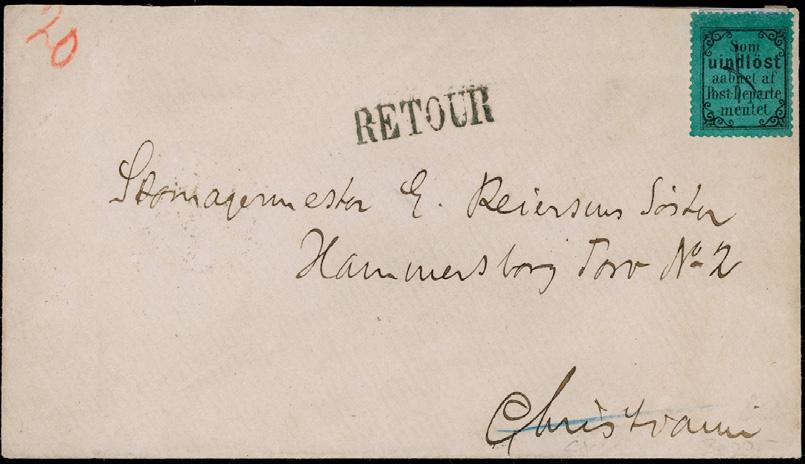 20
Som
uindlöst
aabnet af
Post-Departe
mentet
RETOUR
Skomagermester E. Reiersens Söster
Hammersborg Torv No 2
Christiania